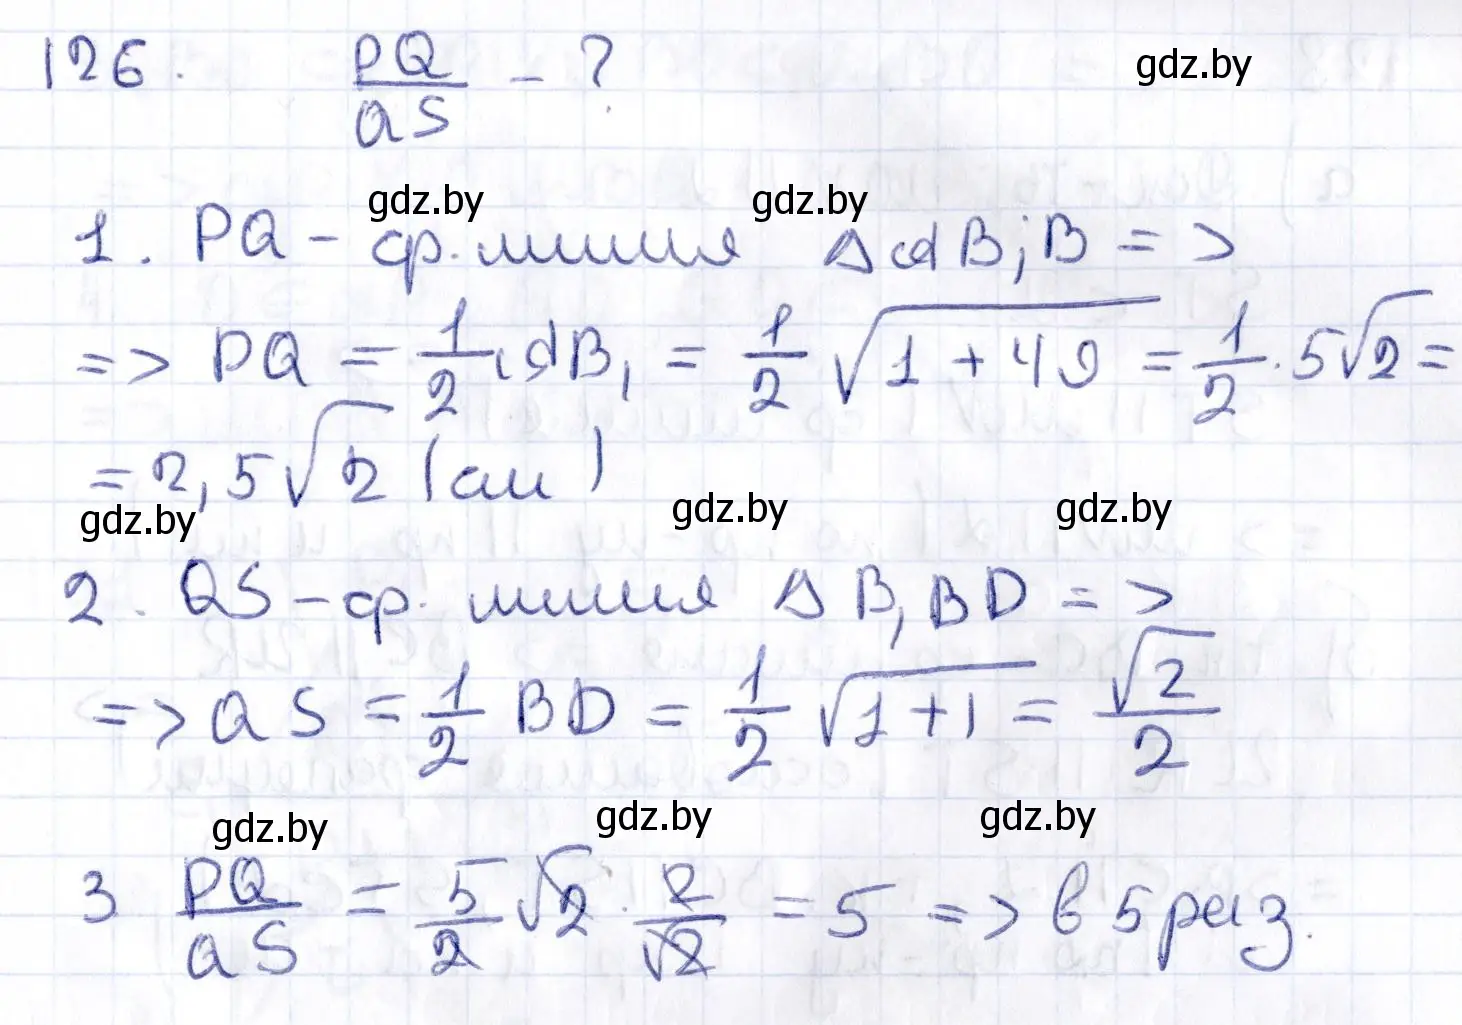 126. PQ/QS - ?
gdz.by
gdz.by gdz.by
1. PQ - ср. линия Δ AB₁B =>
=> PQ = 1/2 AB₁ = 1/2 √(1+49) = 1/2 · 5√2 =
= 2,5√2 (см)
gdz.by gdz.by gdz.by
2. QS - ср. линия Δ B₁BD =>
=> QS = 1/2 BD = 1/2 √(1+1) = √2/2
gdz.by gdz.by gdz.by
3 PQ/QS = 5/2 √2 · 2/√2 = 5 => в 5 раз.